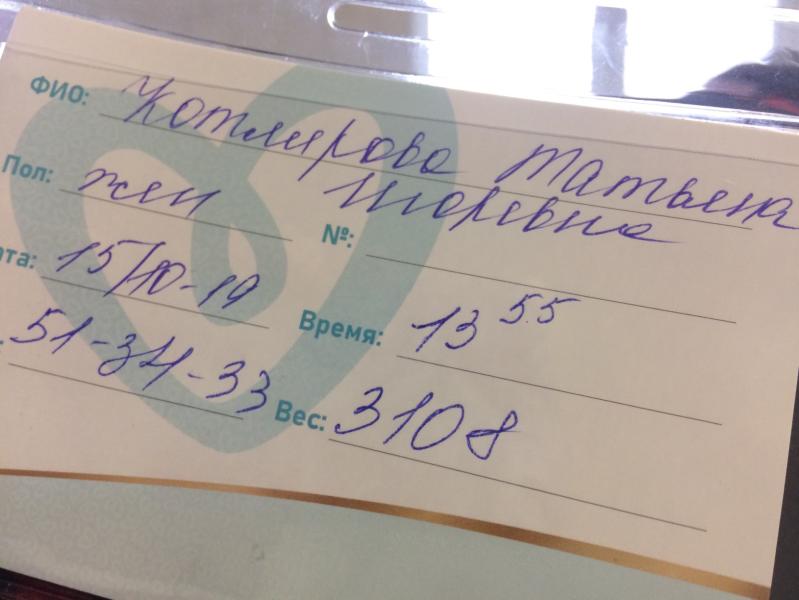 ФИО: Котлярова Татьяна
Игоревна
Пол: жен
№:
ата: 15/10-19
Время: 13 55
51-34-33
Вес: 3108